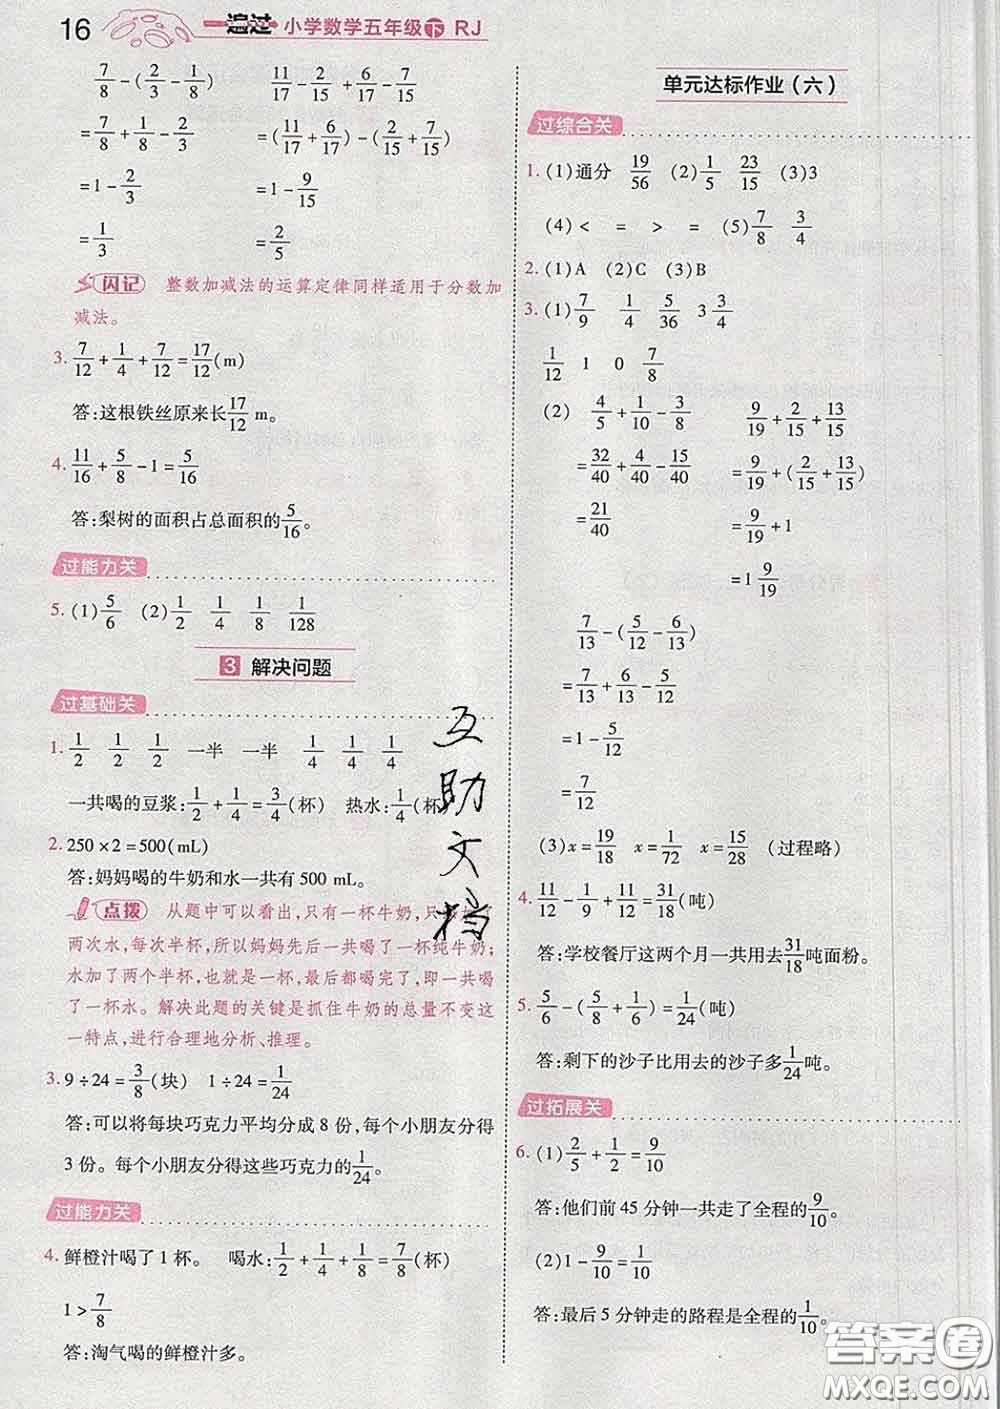 16 一遍过 小学数学五年级 下 RJ
7/8-(2/3-1/8) 11/17-2/15+6/17-7/15
=7/8+1/8-2/3 =(11/17+6/17)-(2/15+7/15)
=1-2/3 =1-9/15
=1/3 =2/5
闪记 整数加减法的运算定律同样适用于分数加
减法。
3. 7/12+1/4+7/12=17/12(m)
答:这根铁丝原来长17/12 m。
4. 11/16+5/8-1=5/16
答:梨树的面积占总面积的5/16。
过能力关
5. (1)5/6 (2)1/2 1/4 1/8 1/128
3 解决问题
过基础关
1. 1/2 1/2 1/2 一半 一半 1/4 1/4 1/4
一共喝的豆浆:1/2+1/4=3/4(杯) 热水:1/4(杯)
2. 250×2=500(mL)
答:妈妈喝的牛奶和水一共有 500 mL。
点拨 从题中可以看出,只有一杯牛奶,只
两次水,每次半杯,所以妈妈先后一共喝了一杯纯牛奶;
水加了两个半杯,也就是一杯,最后都喝完了,即一共喝
了一杯水。解决此题的关键是抓住牛奶的总量不变这
一特点,进行合理地分析、推理。
3. 9÷24=3/8(块) 1÷24=1/24
答:可以将每块巧克力平均分成 8 份,每个小朋友分得
3 份。每个小朋友分得这些巧克力的1/24。
过能力关
4. 鲜橙汁喝了 1 杯。 喝水:1/2+1/4+1/8=7/8(杯)
1>7/8
答:淘气喝的鲜橙汁多。
互助文档
单元达标作业(六)
过综合关
1. (1)通分 19/56 (2)1/5 23/15 (3)3
(4)< = > = (5)7/8 3/4
2. (1)A (2)C (3)B
3. (1)7/9 1/4 5/36 3 3/4
1/12 1 0 7/8
(2) 4/5+1/10-3/8 9/19+2/15+13/15
=32/40+4/40-15/40 =9/19+(2/15+13/15)
=21/40 =9/19+1
=1 9/19
7/13-(5/12-6/13)
=7/13+6/13-5/12
=1-5/12
=7/12
(3)x=19/18 x=1/72 x=15/28 (过程略)
4. 11/12-1/9+11/12=31/18(吨)
答:学校餐厅这两个月一共用去31/18吨面粉。
5. 5/6-(5/8+1/6)=1/24(吨)
答:剩下的沙子比用去的沙子多1/24吨。
过拓展关
6. (1)2/5+1/2=9/10
答:他们前 45 分钟一共走了全程的9/10。
(2)1-9/10=1/10
答:最后 5 分钟走的路程是全程的1/10。
答案圈
MXQE.COM